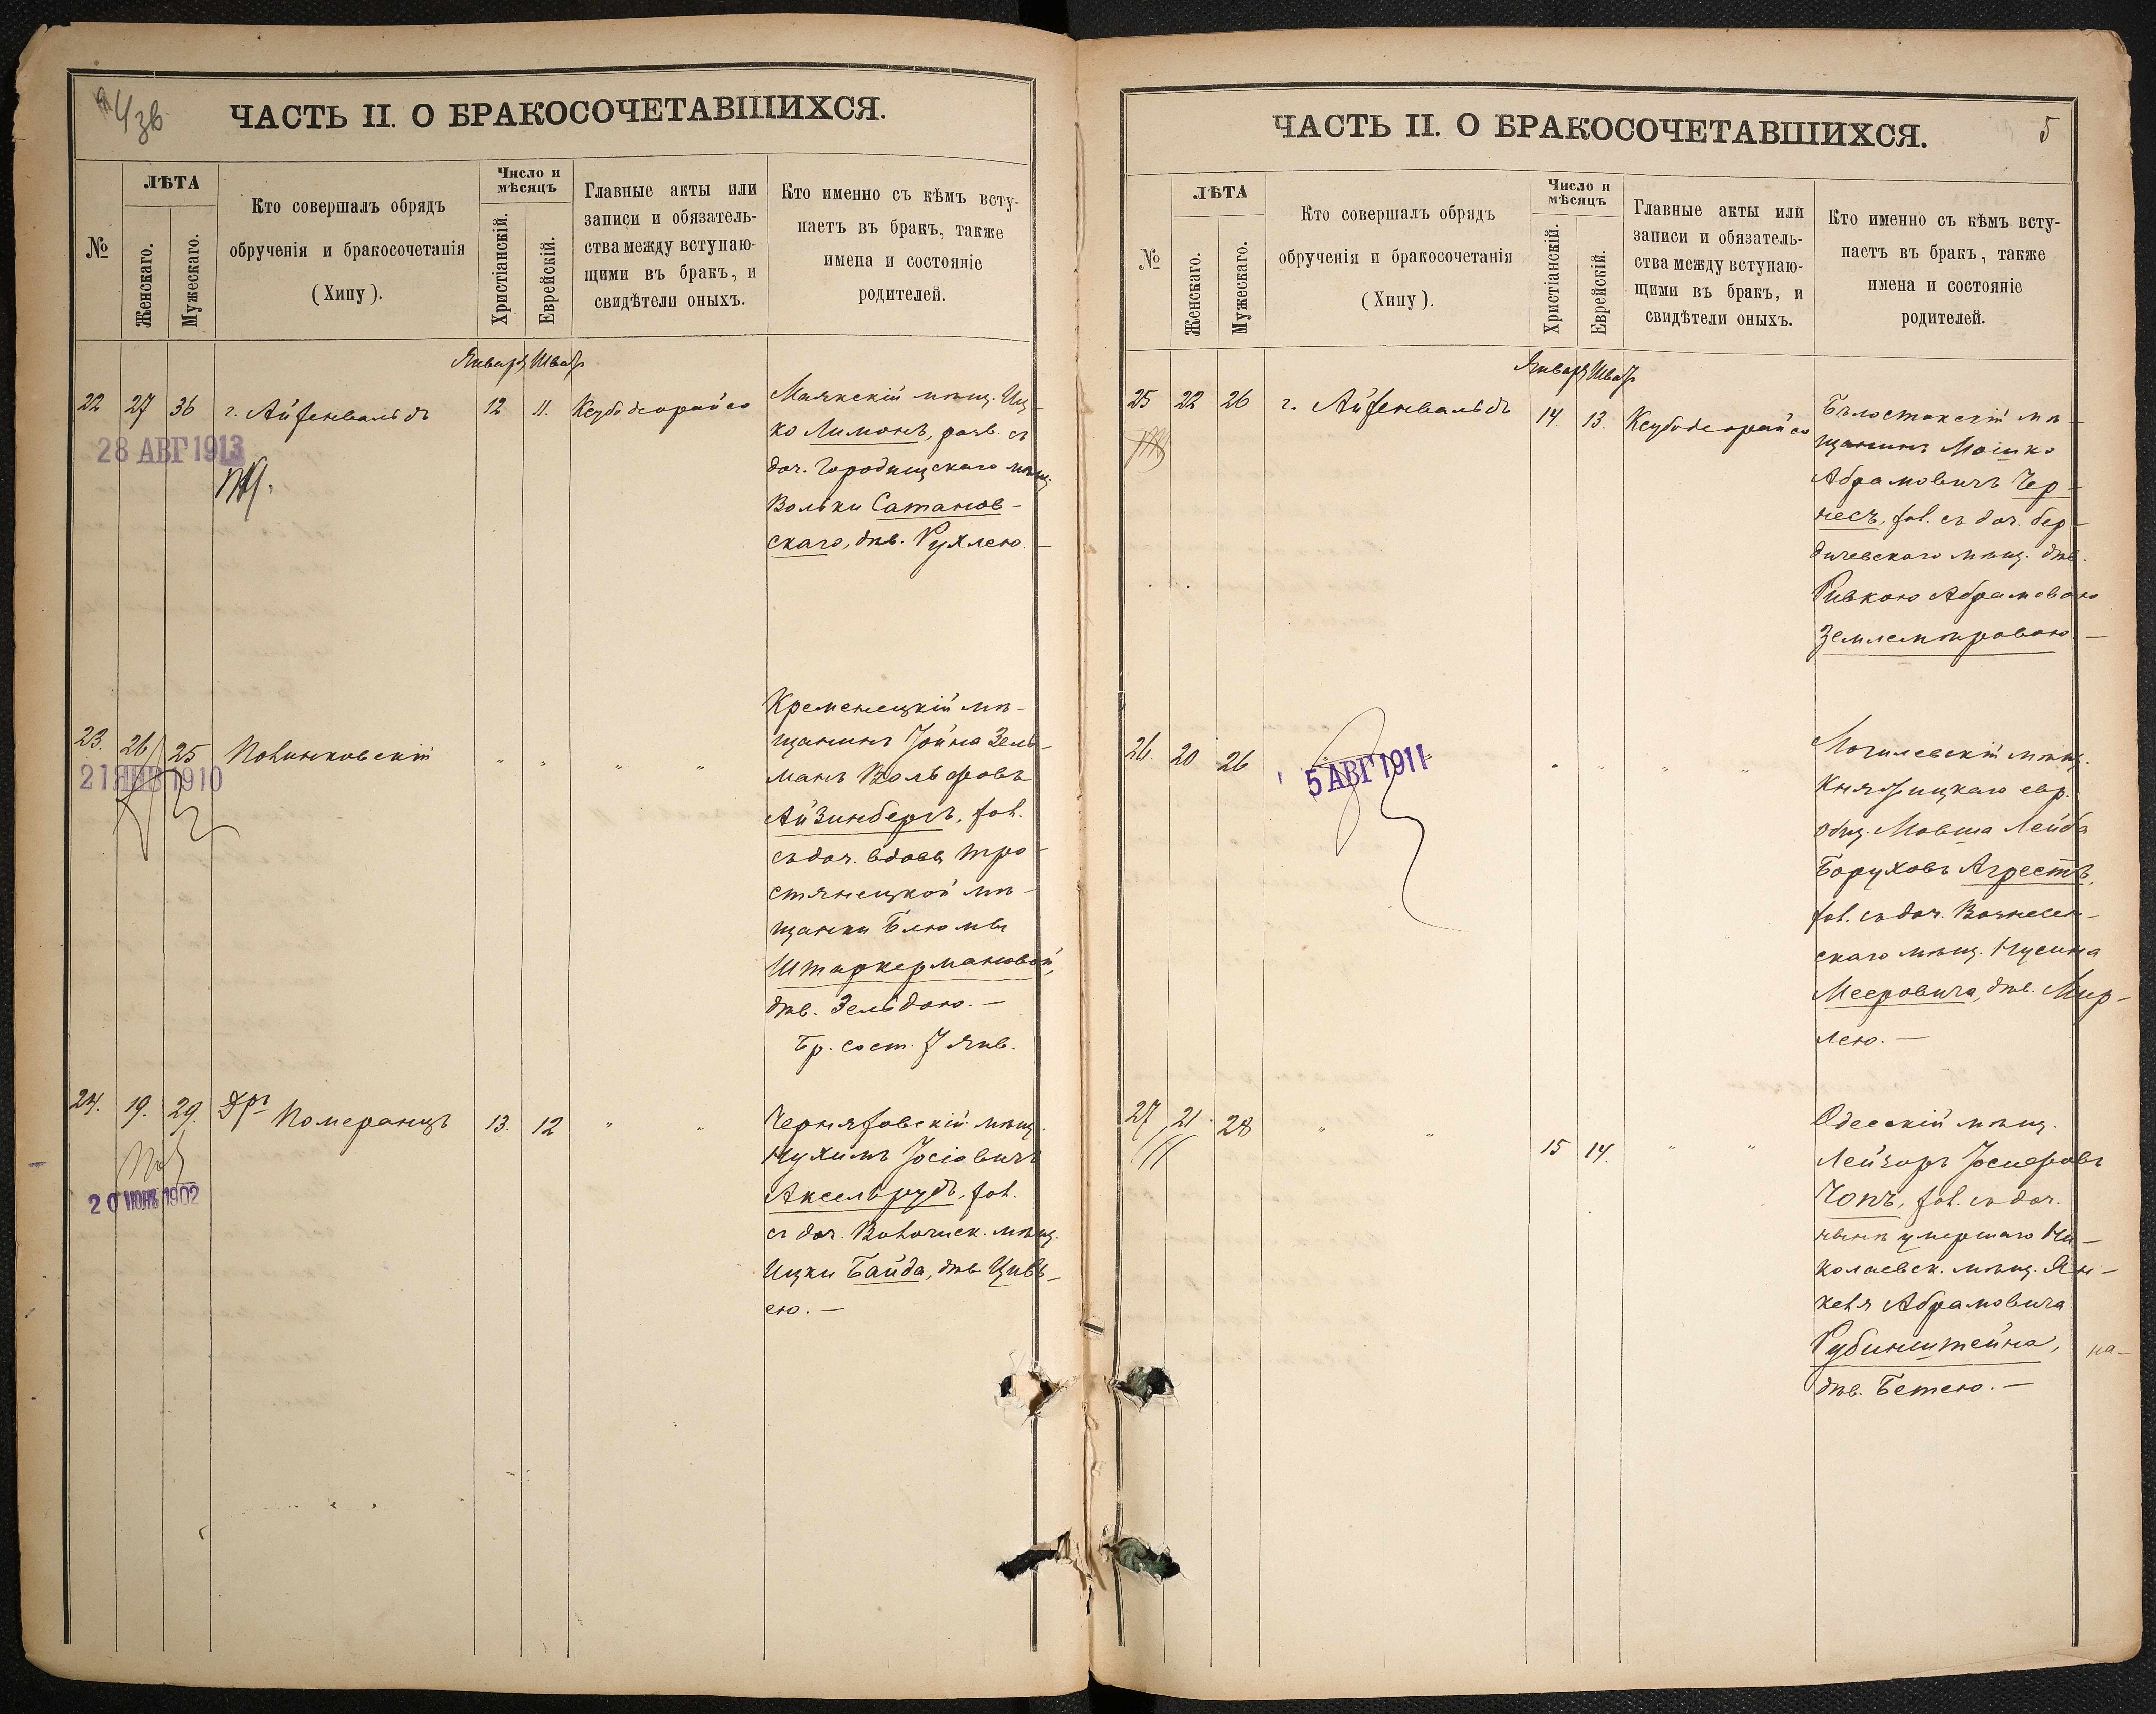 4 зв
ЧАСТЬ II. О БРАКОСОЧЕТАВШИХСЯ.
№
ЛѢТА
Женскаго.
Мужескаго.
Кто совершалъ обрядъ
обрученія и бракосочетанія
(Хипу).
Число и
мѣсяцъ
Христіанскій.
Еврейскій.
Главные акты или
записи и обязатель-
ства между вступаю-
щими въ бракъ, и
свидѣтели оныхъ.
Кто именно съ кѣмъ всту-
паетъ въ бракъ, также
имена и состояніе
родителей.
Январь Шватъ
22 27 36 г. Айзенвальдъ 12 11.
28 АВГ 1913
Маякскій мѣщ. Иц-
ко Лимонъ, разв. съ
доч. Городищскаго мѣщ.
Вольки Сатанов-
скаго, дѣв. Рухлею. —
23. 26 25 Повинковскій " " " "
21 ЯНВ 1910
Кременецкій мѣ-
щанинъ Іойна Зель-
манъ Вольфовъ
Айзинбергъ, хол.
съ доч. вдовы Тро-
стянецкой мѣ-
щанки Блюмы
Штаркермановой,
дѣв. Зельдою. —
Бр. сост. 7 Янв.
24. 19. 29. Дръ Померанцъ 13. 12 " "
20 ІЮН 1902
Черняховскій мѣщ.
Нухимъ Іосіовичъ
Аксельрудъ, хол.
съ доч. Волочиск. мѣщ.
Ицки Байда, дѣв. Цивь-
ею. —
5
ЧАСТЬ II. О БРАКОСОЧЕТАВШИХСЯ.
№
ЛѢТА
Женскаго.
Мужескаго.
Кто совершалъ обрядъ
обрученія и бракосочетанія
(Хипу).
Число и
мѣсяцъ
Христіанскій.
Еврейскій.
Главные акты или
записи и обязатель-
ства между вступаю-
щими въ бракъ, и
свидѣтели оныхъ.
Кто именно съ кѣмъ всту-
паетъ въ бракъ, также
имена и состояніе
родителей.
Январь Шватъ
25 22 26 г. Айзенвальдъ 14. 13.
Бѣлостокскій мѣ-
щанинъ Мошко
Абрамовичъ Чер-
несъ, хол. съ доч. бер-
дичевскаго мѣщ. дѣв.
Ривкою Абрамовою
Землемѣровою. —
26. 20 26 " " " "
5 АВГ 1911
Могилевскій мѣщ.
Княжицкаго евр.
общ. Мовша Лейба
Боруховъ Агрестъ,
хол. съ доч. Вознесен-
скаго мѣщ. Нусина
Мееровича, дѣв. Мир-
лею. —
27 21. 28 " " 15 14. " "
Одесскій мѣщ.
Лейзоръ Іосифовъ
Чопъ, хол. съ доч.
нынѣ умершаго Ни-
колаевск. мѣщ. Ян-
келя Абрамовича
Рубинштейна,
дѣв. Бетею. —
на-